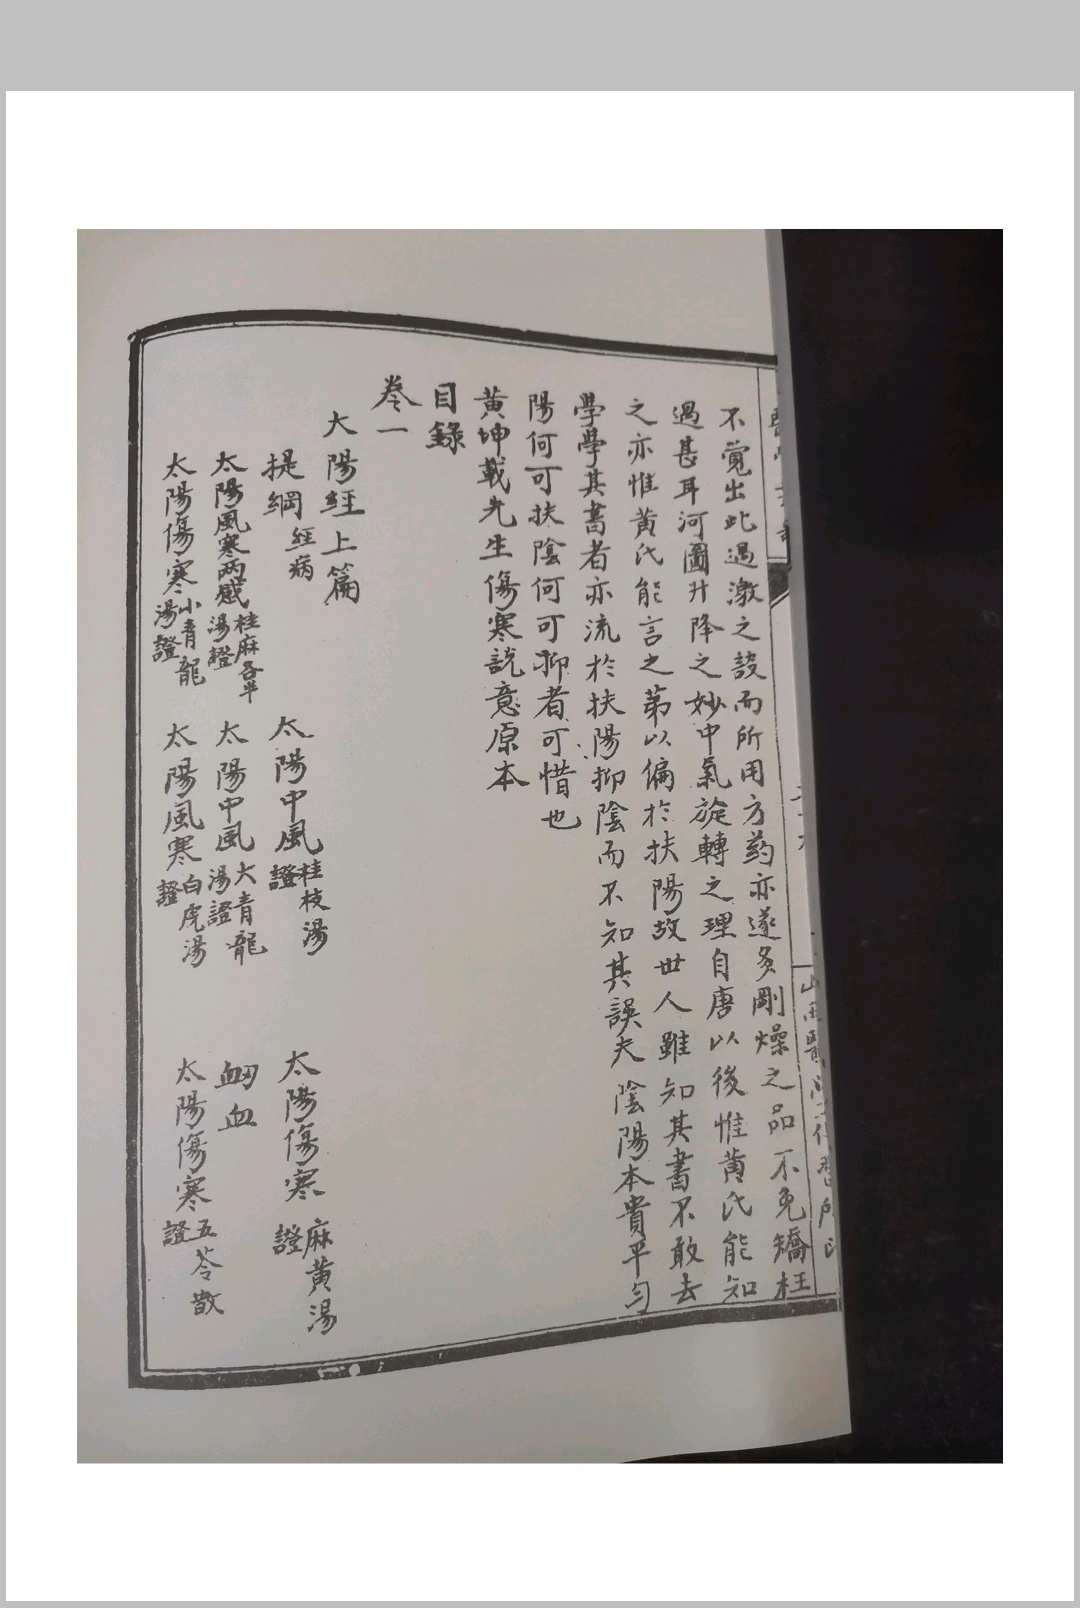 不覺出此過激之設而所用方药亦遂多剛燥之品不免矯枉
過甚耳河圖升降之妙中氣旋轉之理自唐以後惟黄氏能知
之亦惟黄氏能言之第以偏於扶陽故世人雖知其書不敢去
學學其書者亦流於扶陽抑陰而不知其誤夫陰陽本貴平匀
陽何可扶陰何可抑者可惜也
黄坤載先生傷寒説意原本
目錄
卷一
太陽經上篇
提綱 經病 太陽中風 桂枝湯證 太陽傷寒 麻黄湯證
太陽風寒两感 桂麻各半湯證 太陽中風 大青龍湯證 衂血
太陽傷寒 小青龍湯證 太陽風寒 白虎湯證 太陽傷寒 五苓散證